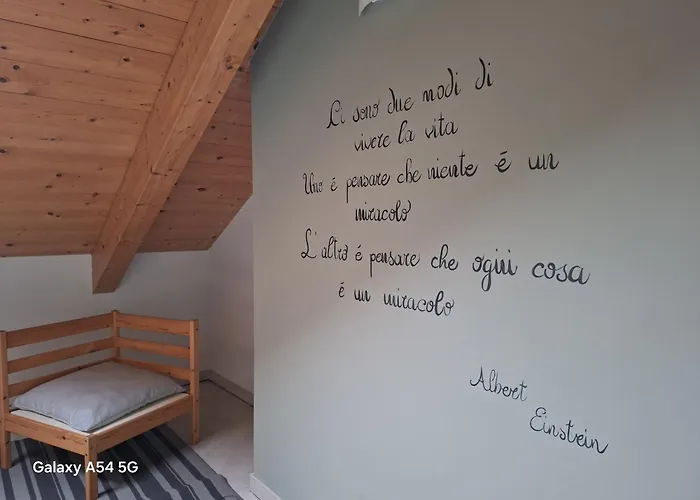 Ci sono due modi di
vivere la vita
Uno é pensare che niente é un
miracolo
L'altro é pensare che ogni cosa
é un miracolo
Albert
Einstein
Galaxy A54 5G